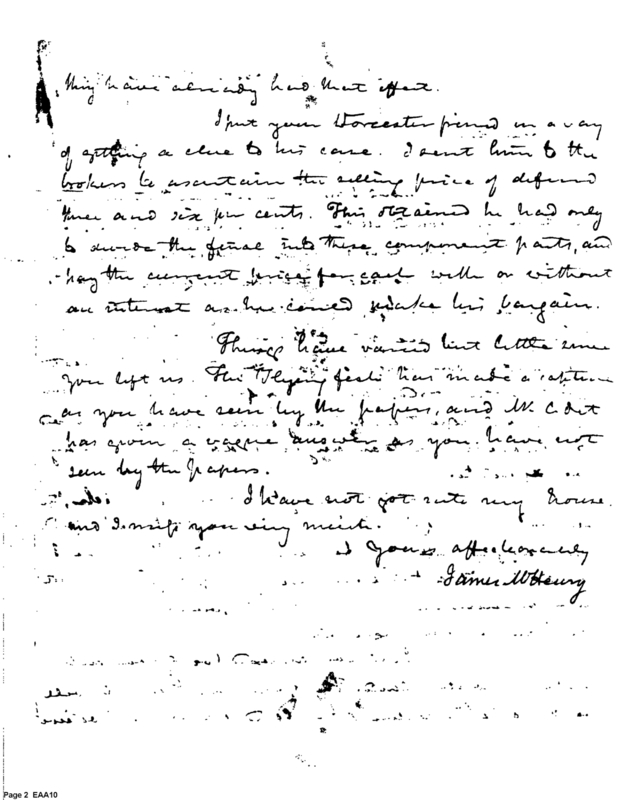 they have already had that effect.
I put your Worcester friend in a way
of getting a clue to his case. I sent him to the
brokers to ascertain the selling price of deferred
three and six per cents. This obtained he had only
to divide the final into these component parts, and
pay the current price for each with or without
an interest as he could make his bargain.
Things have varied but little since
you left us. The Flying fish has made a capture
as you have seen by the papers, and Mr.
has given a vague answer as you have not
seen by the papers.
I have not got into my house
and I miss you very much.
Yours affectionately
James McHenry
Page 2 EAA10